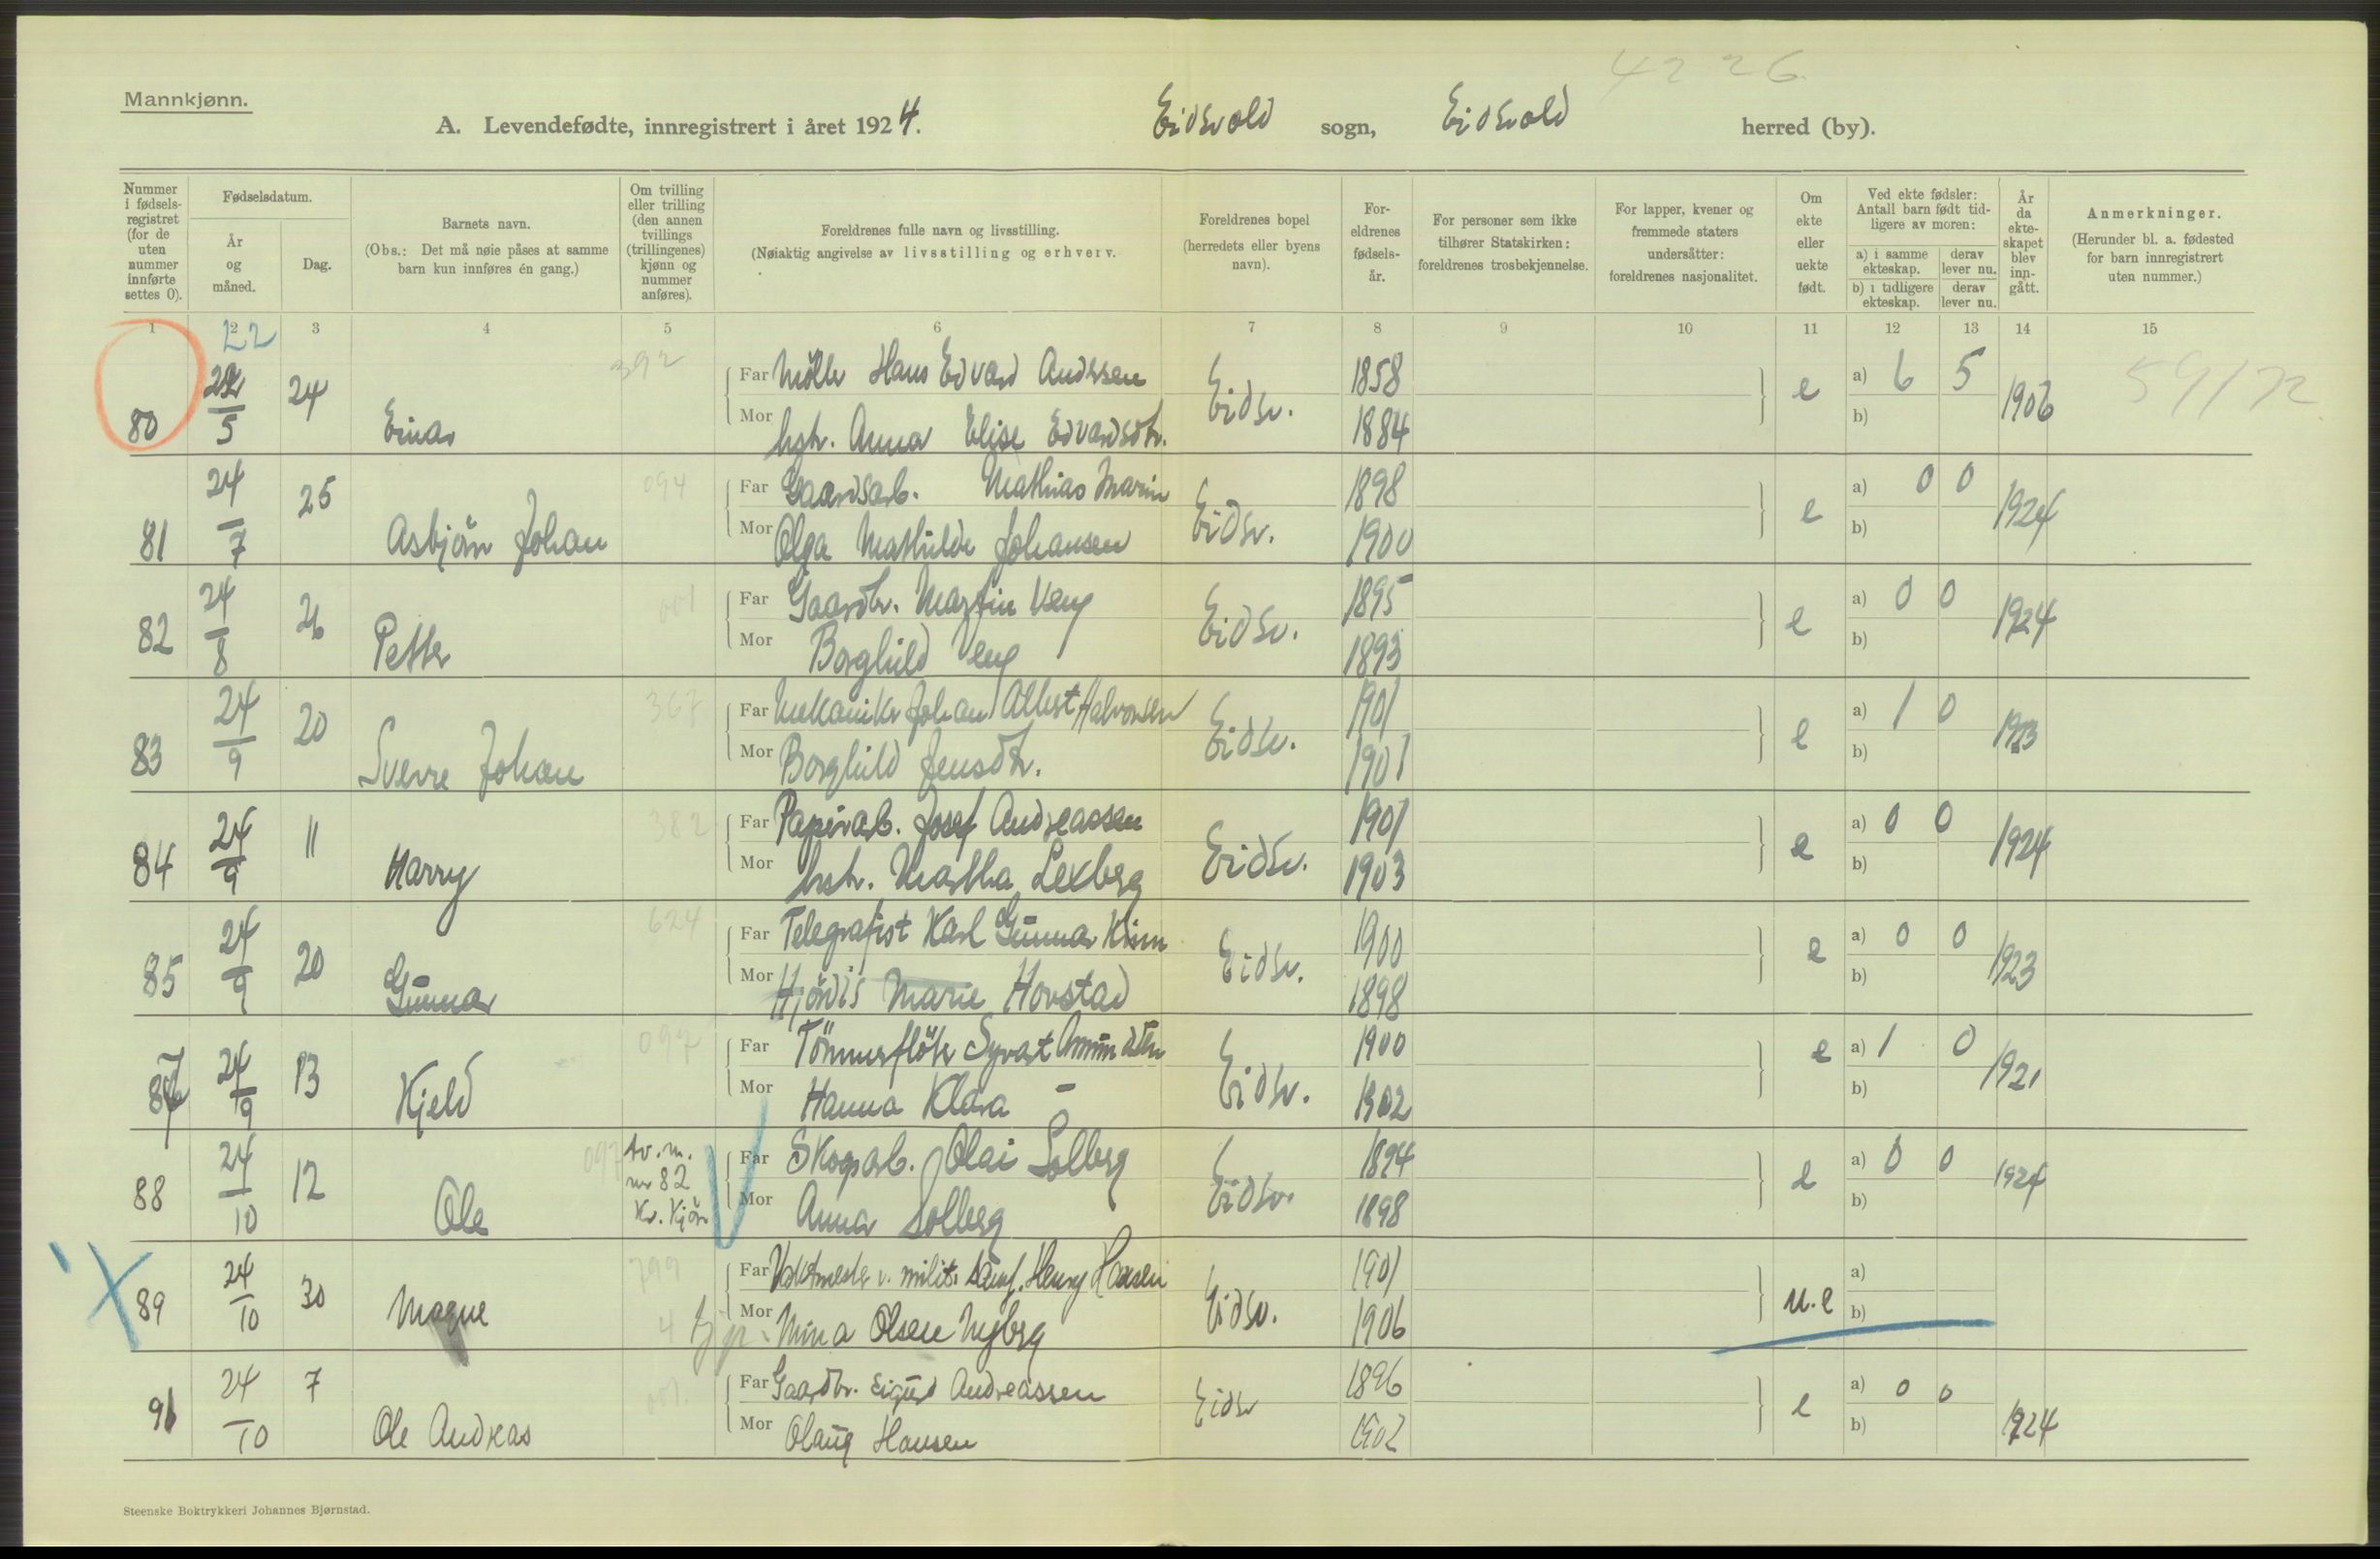 4226
Mannkjønn.
A. Levendefødte, innregistrert i året 1924. Eidsvold sogn, Eidsvold herred (by).
Nummer i fødsels-registret (for de uten nummer innførte settes 0).
Fødselsdatum.
År og måned.
Dag.
Barnets navn.
(Obs.: Det må nøie påses at samme barn kun innføres én gang.)
Om tvilling eller trilling (den annen tvillings (trillingenes) kjønn og nummer anføres).
Foreldrenes fulle navn og livsstilling.
(Nøiaktig angivelse av livsstilling og erhverv.
Foreldrenes bopel (herredets eller byens navn).
For-eldrenes fødsels-år.
For personer som ikke tilhører Statskirken: foreldrenes trosbekjennelse.
For lapper, kvener og fremmede staters undersåtter: foreldrenes nasjonalitet.
Om ekte eller uekte født.
Ved ekte fødsler: Antall barn født tid-ligere av moren:
a) i samme ekteskap. derav lever nu.
b) i tidligere ekteskap. derav lever nu.
År da ekte-skapet blev inn-gått.
Anmerkninger.
(Herunder bl. a. fødested for barn innregistrert uten nummer.)
1 2 3 4 5 6 7 8 9 10 11 12 13 14 15
22
80 22/5 24 Einar 392 Far Möller Hans Edvard Anderssen Eidsv. 1858 e a) 6 5 1906 59/72
Mor hstr. Anna Elise Edvardsdtr. 1884 b)
81 24/7 25 Asbjörn Johan 094 Far Gaardsarb. Mathias Marin Eidsv. 1898 e a) 0 0 1924
Mor Olga Mathilde Johansen 1900 b)
82 24/8 26 Petter 001 Far Gaardbr. Martin Veng Eidsv. 1895 e a) 0 0 1924
Mor Borghild Veng 1893 b)
83 24/9 20 Sverre Johan 367 Far Mekaniker Johan Albert Halvorsen Eidsv. 1901 e a) 1 0 1923
Mor Borghild Jensdtr. 1901 b)
84 24/9 11 Harry 382 Far Papirarb. Josef Andreassen Eidsv. 1901 e a) 0 0 1924
Mor hstr. Martha Lexberg 1903 b)
85 24/9 20 Gunnar 624 Far Telegrafist Karl Gunnar Eidsv. 1900 e a) 0 0 1923
Mor Hjördis Marie Hovstad 1898 b)
87 24/9 13 Kjeld 097 Far Tömmerflöter Syvert Eidsv. 1900 e a) 1 0 1921
Mor Hanna Klara – 1902 b)
88 24/10 12 Ole 097 tv. m. nr 82 Kv. kjön Far Skogsarb. Olai Solberg Eidsv. 1894 e a) 0 0 1924
Mor Anna Solberg 1898 b)
89 24/10 30 Magne 799 Far Vaktmester v. milit. Henry Hansen Eidsv. 1901 u.e a)
4 Mor Mina Olsen Nyberg 1906 b)
91 24/10 7 Ole Andreas 001. Far Gaardbr. Sigurd Andreassen Eidsv 1896 e a) 0 0 1924
Mor Olaug Hansen 1902 b)
Steenske Boktrykkeri Johannes Bjørnstad.